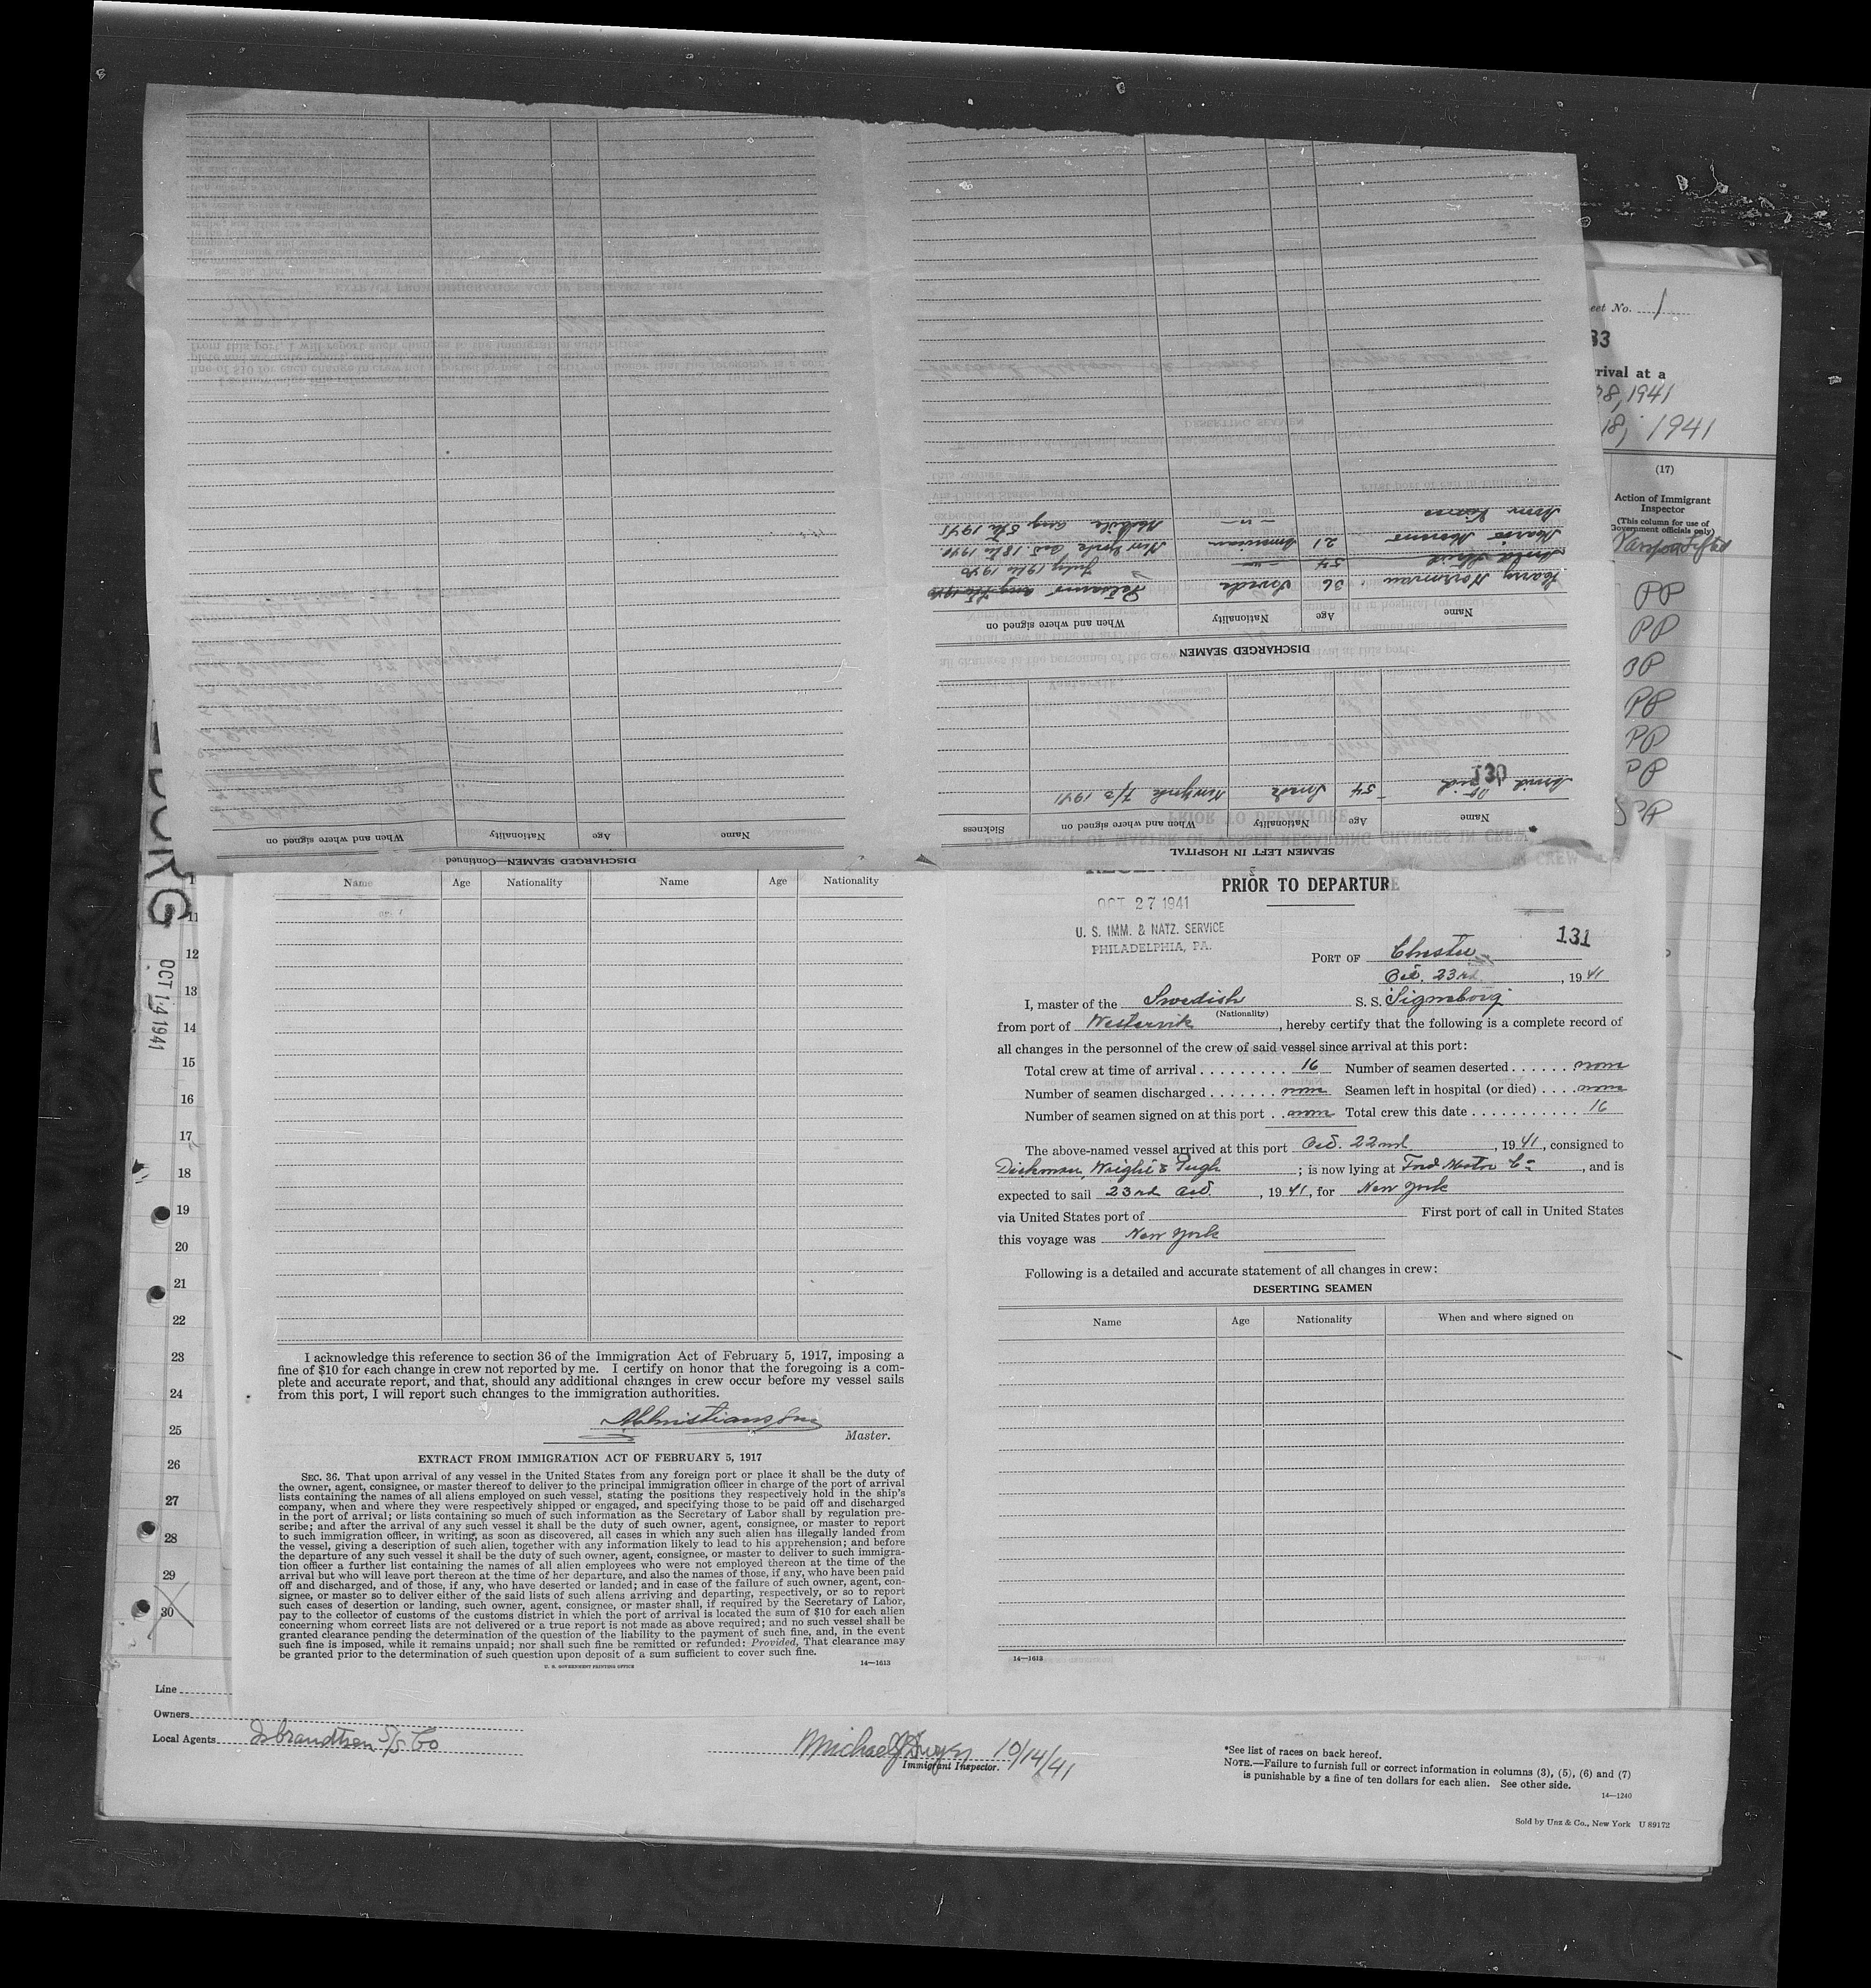 SEAMEN LEFT IN HOSPITAL
Name Age Nationality When and where signed on Sickness
Arvid 54 Swede New York 7/2 1941
130
DISCHARGED SEAMEN
Name Age Nationality When and where signed on
Harry Norrman 36 Swede July 19th 1940
54
Mario Moreno 21 New York Oct. 18th 1940
Mobile Aug 5th 1941
DISCHARGED SEAMEN—Continued
Name Age Nationality When and where signed on
No. 1
33
rival at a
8, 1941
18, 1941
(17)
Action of Immigrant
Inspector
(This column for use of
Government officials only)
PP
PP
PP
PP
PP
PP
OCT 14 1941
11
12
13
14
15
16
17
18
19
20
21
22
23
24
25
26
27
28
29
30
Name Age Nationality Name Age Nationality
I acknowledge this reference to section 36 of the Immigration Act of February 5, 1917, imposing a
fine of $10 for each change in crew not reported by me. I certify on honor that the foregoing is a com-
plete and accurate report, and that, should any additional changes in crew occur before my vessel sails
from this port, I will report such changes to the immigration authorities.
Master.
EXTRACT FROM IMMIGRATION ACT OF FEBRUARY 5, 1917
SEC. 36. That upon arrival of any vessel in the United States from any foreign port or place it shall be the duty of
the owner, agent, consignee, or master thereof to deliver to the principal immigration officer in charge of the port of arrival
lists containing the names of all aliens employed on such vessel, stating the positions they respectively hold in the ship's
company, when and where they were respectively shipped or engaged, and specifying those to be paid off and discharged
in the port of arrival; or lists containing so much of such information as the Secretary of Labor shall by regulation pre-
scribe; and after the arrival of any such vessel it shall be the duty of such owner, agent, consignee, or master to report
to such immigration officer, in writing, as soon as discovered, all cases in which any such alien has illegally landed from
the vessel, giving a description of such alien, together with any information likely to lead to his apprehension; and before
the departure of any such vessel it shall be the duty of such owner, agent, consignee, or master to deliver to such immigra-
tion officer a further list containing the names of all alien employees who were not employed thereon at the time of the
arrival but who will leave port thereon at the time of her departure, and also the names of those, if any, who have been paid
off and discharged, and of those, if any, who have deserted or landed; and in case of the failure of such owner, agent, con-
signee, or master so to deliver either of the said lists of such aliens arriving and departing, respectively, or so to report
such cases of desertion or landing, such owner, agent, consignee, or master shall, if required by the Secretary of Labor,
pay to the collector of customs of the customs district in which the port of arrival is located the sum of $10 for each alien
concerning whom correct lists are not delivered or a true report is not made as above required; and no such vessel shall be
granted clearance pending the determination of the question of the liability to the payment of such fine, and, in the event
such fine is imposed, while it remains unpaid; nor shall such fine be remitted or refunded: Provided, That clearance may
be granted prior to the determination of such question upon deposit of a sum sufficient to cover such fine.
U. S. GOVERNMENT PRINTING OFFICE 14—1613
PRIOR TO DEPARTURE
OCT 27 1941
U. S. IMM. & NATZ. SERVICE
PHILADELPHIA, PA.
131
PORT OF Chester
Oct. 23rd, 1941
I, master of the Swedish S. S. Signeborg
(Nationality)
from port of Westervik, hereby certify that the following is a complete record of
all changes in the personnel of the crew of said vessel since arrival at this port:
Total crew at time of arrival 16 Number of seamen deserted none
Number of seamen discharged none Seamen left in hospital (or died) none
Number of seamen signed on at this port none Total crew this date 16
The above-named vessel arrived at this port Oct. 22nd, 1941, consigned to
Dickman, Wright & Pugh; is now lying at Ford Motor Co, and is
expected to sail 23rd Oct., 1941, for New York
via United States port of First port of call in United States
this voyage was New York
Following is a detailed and accurate statement of all changes in crew:
DESERTING SEAMEN
Name Age Nationality When and where signed on
14—1613
Line
Owners
Local Agents Isbrandtsen S/S Co
Michael J. 10/14/41
Immigrant Inspector.
*See list of races on back hereof.
NOTE.—Failure to furnish full or correct information in columns (3), (5), (6) and (7)
is punishable by a fine of ten dollars for each alien. See other side.
14—1240
Sold by Unz & Co., New York U 89172